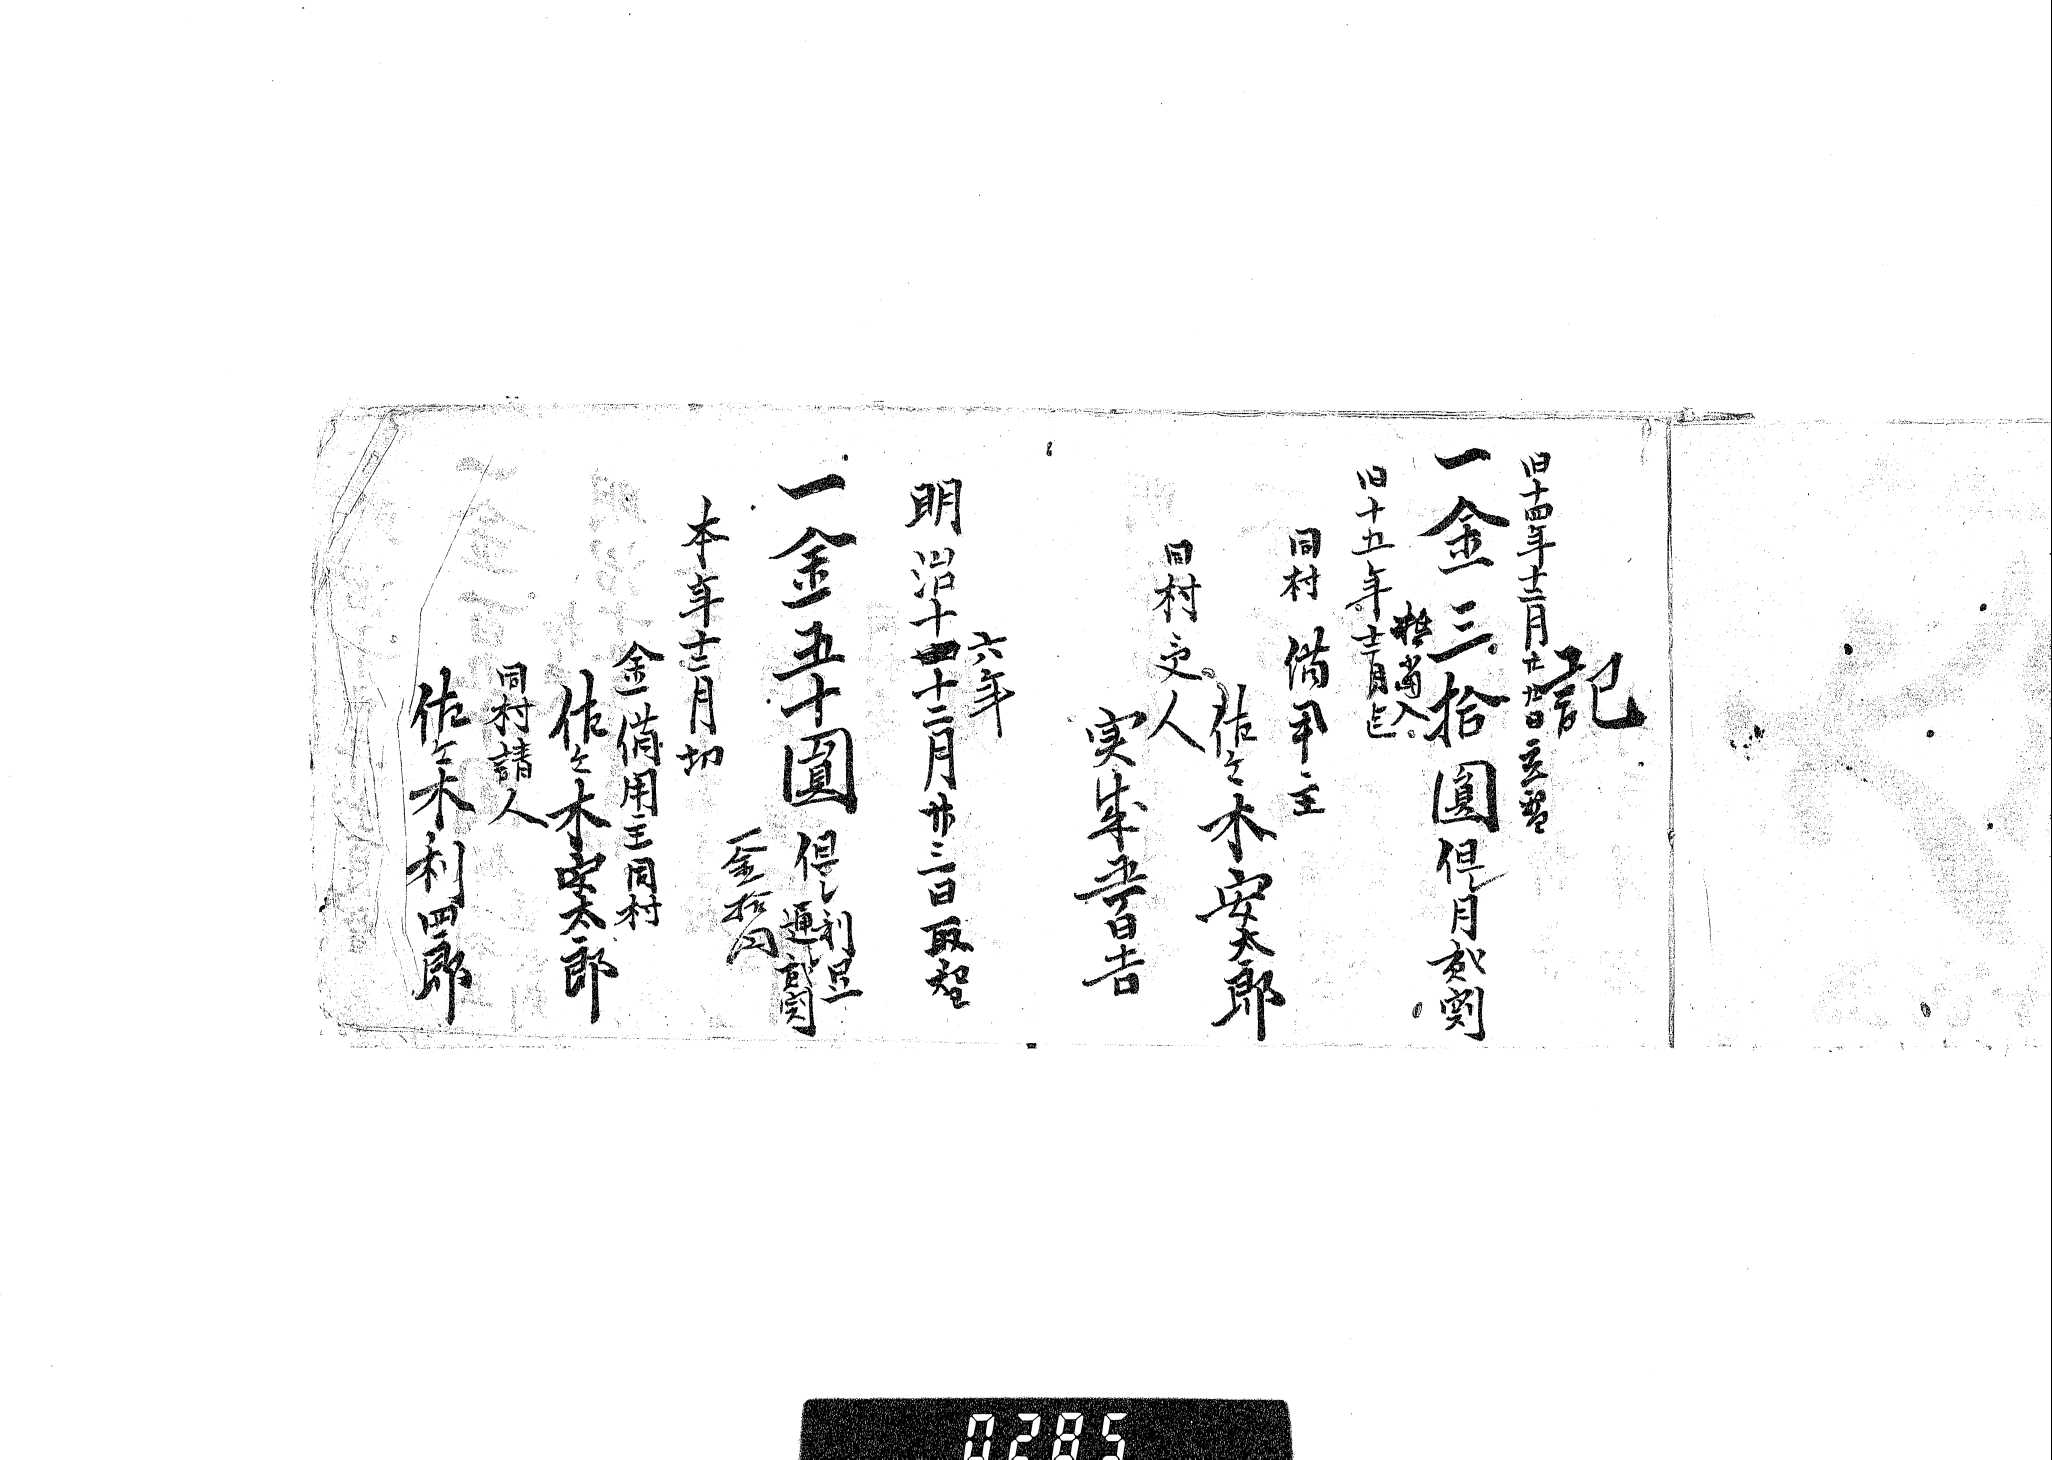 記
旧十四年十二月廿　日
一金三拾圓　但シ月貳割
旧十五年十二月迄
同村　借用主
佐々木安太郎
同村受人
実米吾吉
六年
明治十四十二月廿三日取
一金五十圓　但シ利足
通貳割
一金拾円
本年十二月切
金借用主同村
佐々木安太郎
同村請人
佐々木利四郎
0285